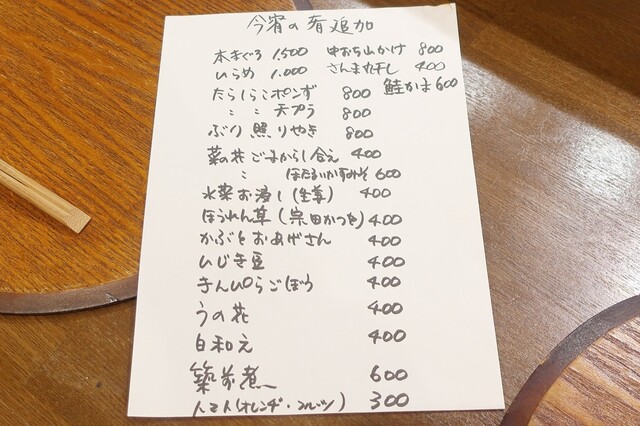 今宵の肴追加
本まぐろ 1,500 中おち山かけ 800
ひらめ 1,000 さんま丸干し 400
たらしらこポンず 800 鮭かま 600
〃 〃 天プラ 800
ぶり照りやき 800
菜の花ごまからし合え 400
〃 ほたるいかすみそ 600
水菜お浸し(生姜) 400
ほうれん草(宗田かつを) 400
かぶとおあげさん 400
ひじき豆 400
きんぴらごぼう 400
うの花 400
白和え 400
築前煮 600
トマト(オレンヂ・フルーツ) 300